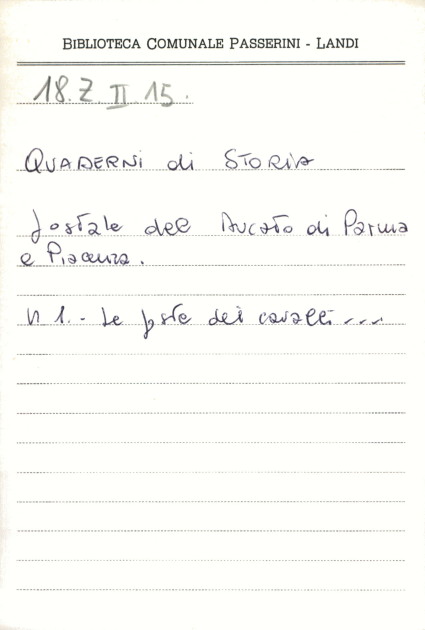 BIBLIOTECA COMUNALE PASSERINI - LANDI
18.Z II 15.
QUADERNI di STORIA
postale del Ducato di Parma
e Piacenza.
N 1. - Le poste dei cavalli ...